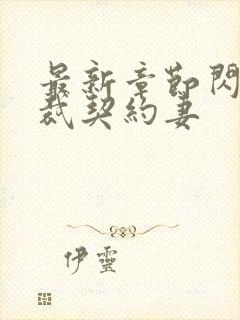 最新章節閃
裁契約妻
伊靈